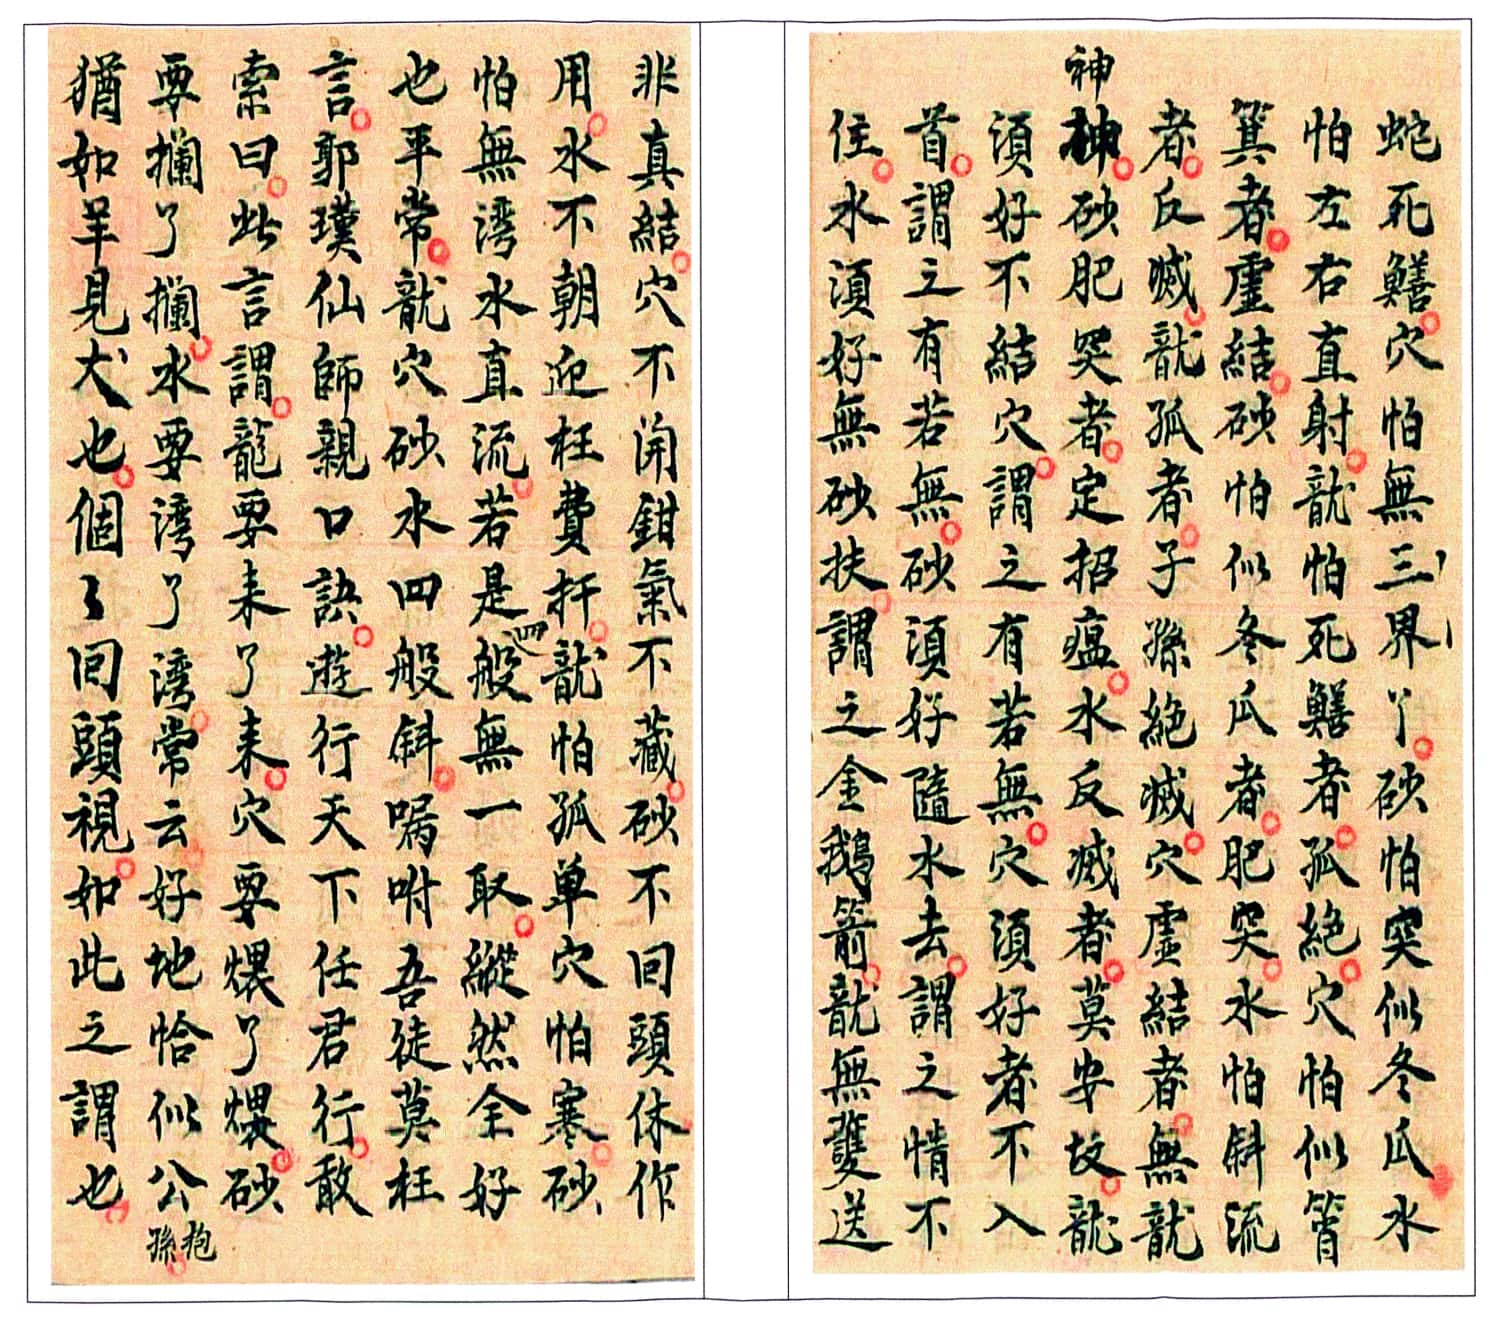 蛇死鱔穴怕無三界丫砂怕突似冬瓜水
怕左右直射龍怕死鱔者孤絶穴怕似筲
箕者虛結砂怕似冬瓜者肥突水怕斜流
者反滅龍孤者子孫絶滅穴虛結者無龍
神神砂肥突者定招瘟水反滅者莫安坟龍
須好不結穴謂之有若無穴須好者不入
首謂之有若無砂須好隨水去謂之情不
住水須好無砂扶謂之金鵝箭龍無雙送
非真結穴不開鉗氣不藏砂不回頭休作
用水不朝迎枉費扦龍怕孤单穴怕寒砂
怕無湾水直流若是四般無一取縱然全好
也平常龍穴砂水四般斜嘱咐吾徒莫枉
言郭璞仙師親口訣遊行天下任君行敢
索曰此言謂龍要来了来穴要煨了煨砂
要攔了攔水要湾了湾常云好地恰似公抱孫
猶如羊見犬也個々回頭視如此之謂也